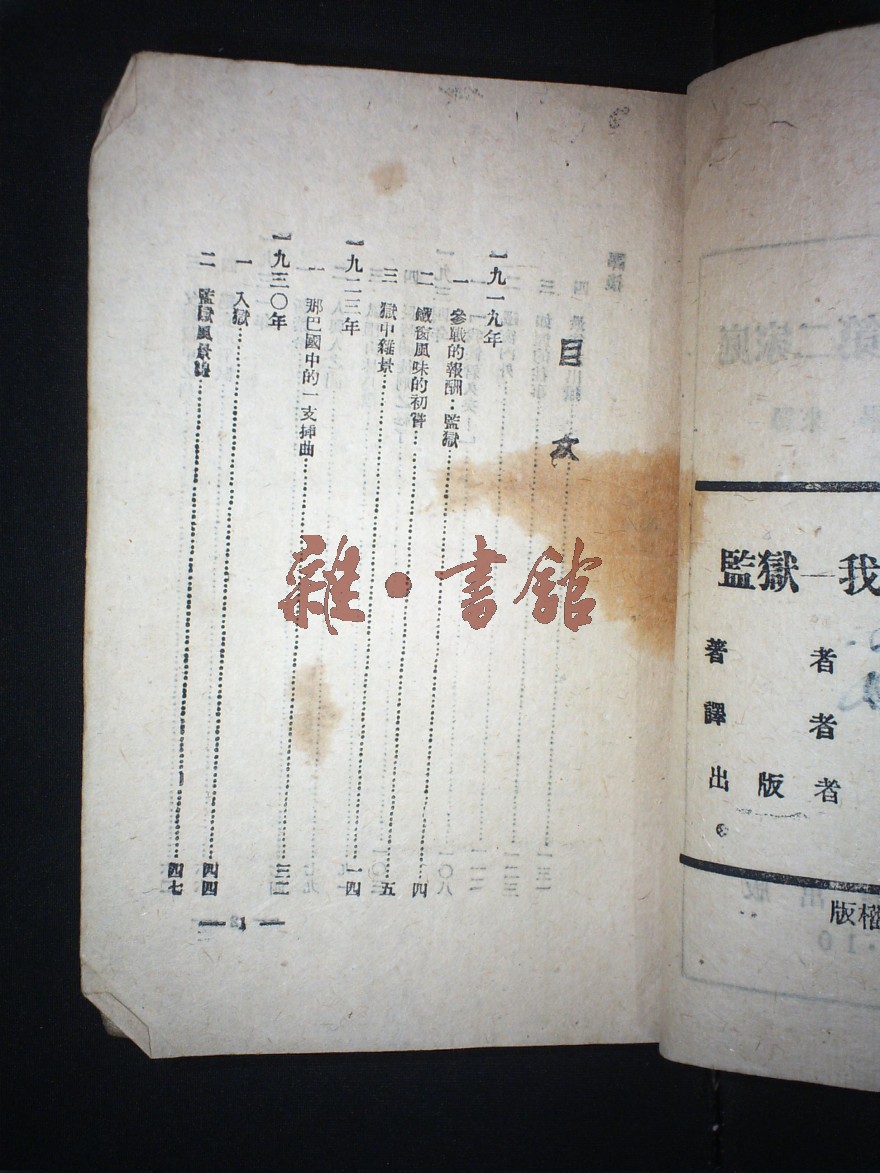 監獄—我
著者
譯者
出版者
版權
目次
一九一九年
一 參戰的報酬：監獄……四
二 鐵窗風味的初嘗……五
三 獄中雜景……一四
一九二三年
一 那巴國中的一支揷曲……三二
一九三〇年
一 入獄……四四
二 監獄風景線……四七
雜·書館